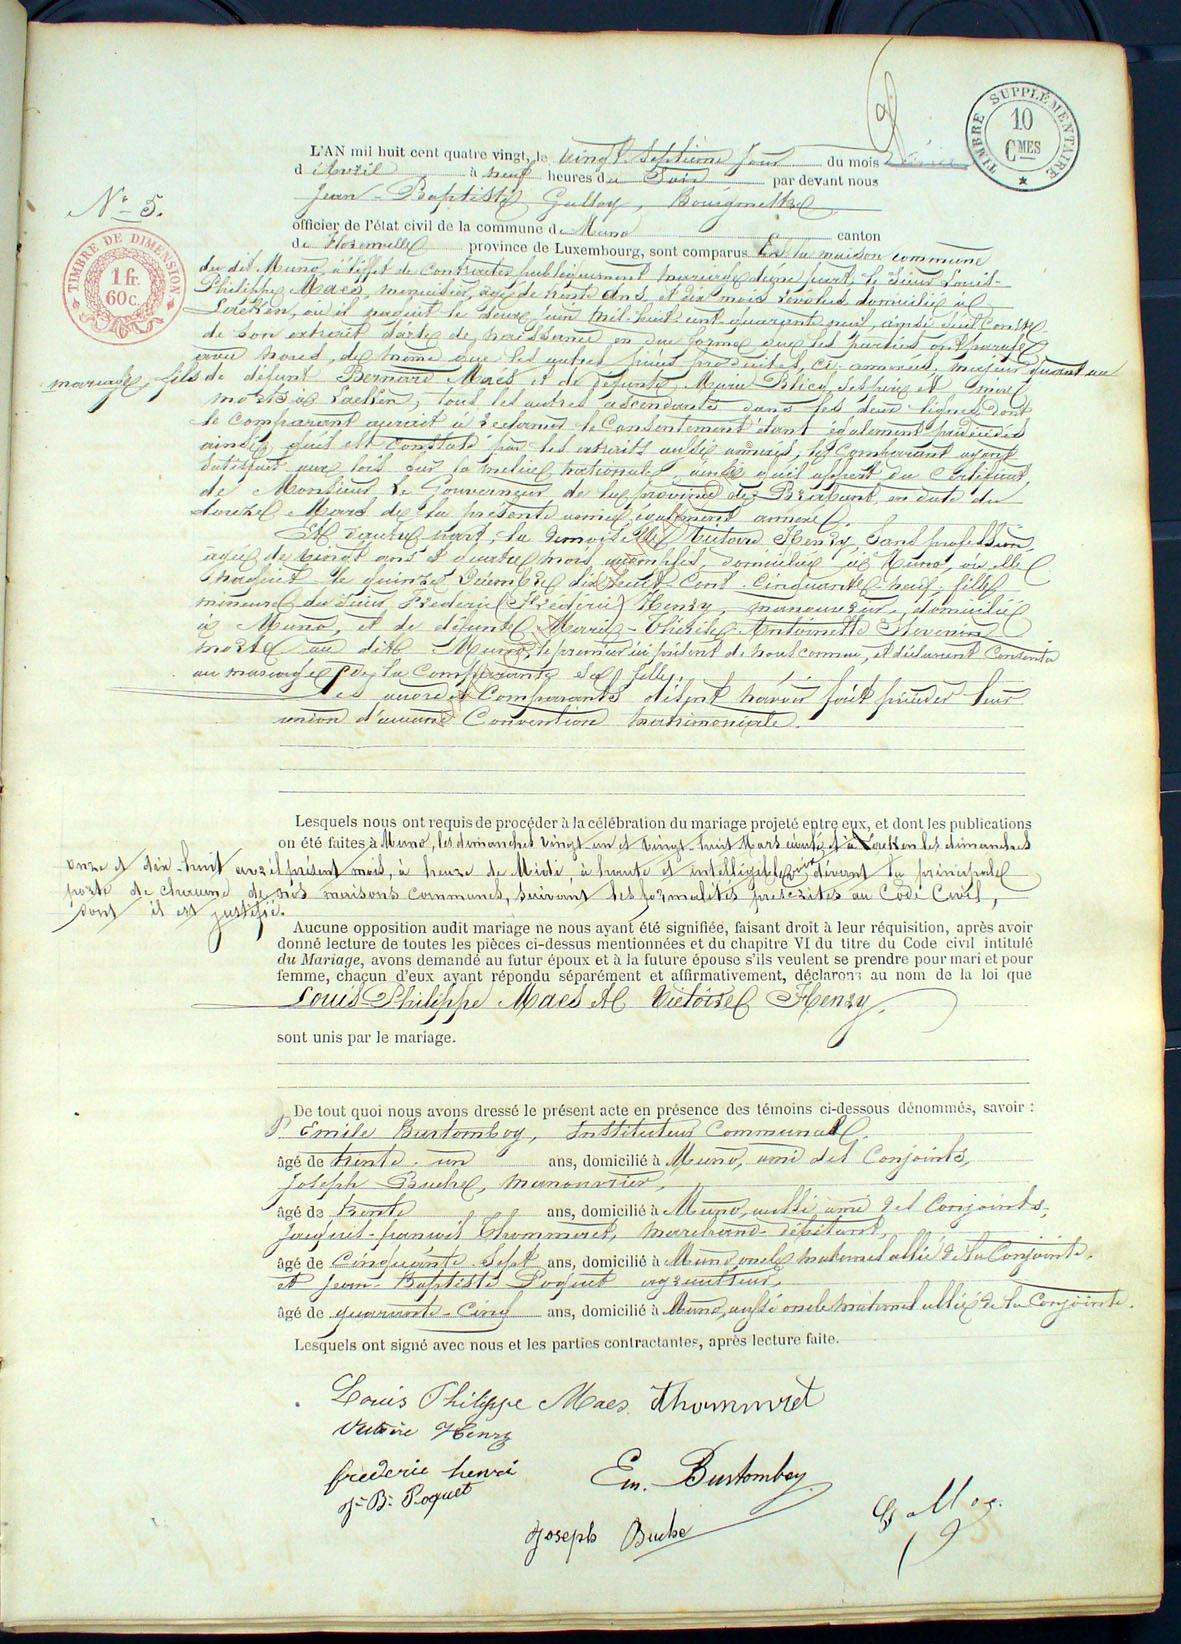 TIMBRE SUPPLÉMENTAIRE
10
CMES
L'AN mil huit cent quatre vingt, le vingt Septième Jour du mois
d'Avril à neuf heures du Soir par devant nous
Jean-Baptiste Galloy, Bourgmestre
N° 5.
officier de l'état civil de la commune de Muno canton
de Florenville province de Luxembourg, sont comparus En la maison commune
TIMBRE DE DIMENSION
1 fr.
60 c.
du dit Muno, à l'effet de contracter publiquement mariage d'une part, le Sieur Louis-
Philippe Maes, menuisier, âgé de trente ans, et dix mois révolus domicilié à
Laeken, où il naquit le deux juin mil-huit-cent-quarante neuf, ainsi qu'il conste
de son extrait d'acte de naissance en due forme que les parties ont paraphé
avec nous, de même que les autres pièces produites, ci-annexées, majeur quant au
mariage, fils de défunt Bernard Maes et de défunte Marie, ses père et mère
morts à Laeken, tous les autres ascendants dans les deux lignes dont
le comparant aurait à réclamer le consentement étant également prédécédés
ainsi qu'il est constaté par les extraits aussi annexés, le Comparant ayant
satisfait aux lois sur la milice nationale ainsi qu'il appert du certificat
de Monsieur le Gouverneur de la province de Brabant, en date du
douze Mars de la présente année également annexé.
Et d'autre part, la demoiselle Victoire Henry, Sans profession,
âgée de vingt ans et quatre mois accomplis, domiciliée à Muno où elle
naquit le quinze Décembre dix huit-Cent-Cinquante-neuf, fille
mineure du Sieur Frederic (Frédéric) Henry, manouvrier, domicilié
à Muno, et de défunte Marie-Thérèse Antoinette Stevenin
morte au dit Muno, le premier ici présent de nous connu, et déclarant Consentir
au mariage de la Comparante Sa fille.
Les Comparants disent n'avoir fait précéder leur
union d'aucune Convention matrimoniale.
Lesquels nous ont requis de procéder à la célébration du mariage projeté entre eux, et dont les publications
on été faites à Muno, les dimanches vingt-un et vingt-huit Mars écoulé, et à Laeken les dimanches
onze et dix-huit avril présent mois, à heure de Midi, à haute et intelligible voix, devant la principale
porte de chacune de nos maisons communes, suivant les formalités prescrites au Code Civil,
dont il est justifié.
Aucune opposition audit mariage ne nous ayant été signifiée, faisant droit à leur réquisition, après avoir
donné lecture de toutes les pièces ci-dessus mentionnées et du chapitre VI du titre du Code civil intitulé
du Mariage, avons demandé au futur époux et à la future épouse s'ils veulent se prendre pour mari et pour
femme, chacun d'eux ayant répondu séparément et affirmativement, déclarons au nom de la loi que
Louis Philippe Maes et Victoire Henry.
sont unis par le mariage.
De tout quoi nous avons dressé le présent acte en présence des témoins ci-dessous dénommés, savoir :
Emile Burtomboy, Instituteur Communal
âgé de trente-un ans, domicilié à Muno, ami des Conjoints,
Joseph Buche, manouvrier,
âgé de trente ans, domicilié à Muno, aussi ami des Conjoints,
Jacques-françois Thommeret, Marchand-débitant,
âgé de Cinquante-Sept ans, domicilié à Muno oncle maternel allié de la Conjointe.
et Jean-Baptiste Poquet agriculteur,
âgé de quarante-Cinq ans, domicilié à Muno, aussi oncle maternel allié de la Conjointe.
Lesquels ont signé avec nous et les parties contractantes, après lecture faite.
Louis Philippe Maes Thommeret
Victoire Henry
frederic henri Em. Burtomboy
J-B: Poquet Galloy.
Joseph Buche